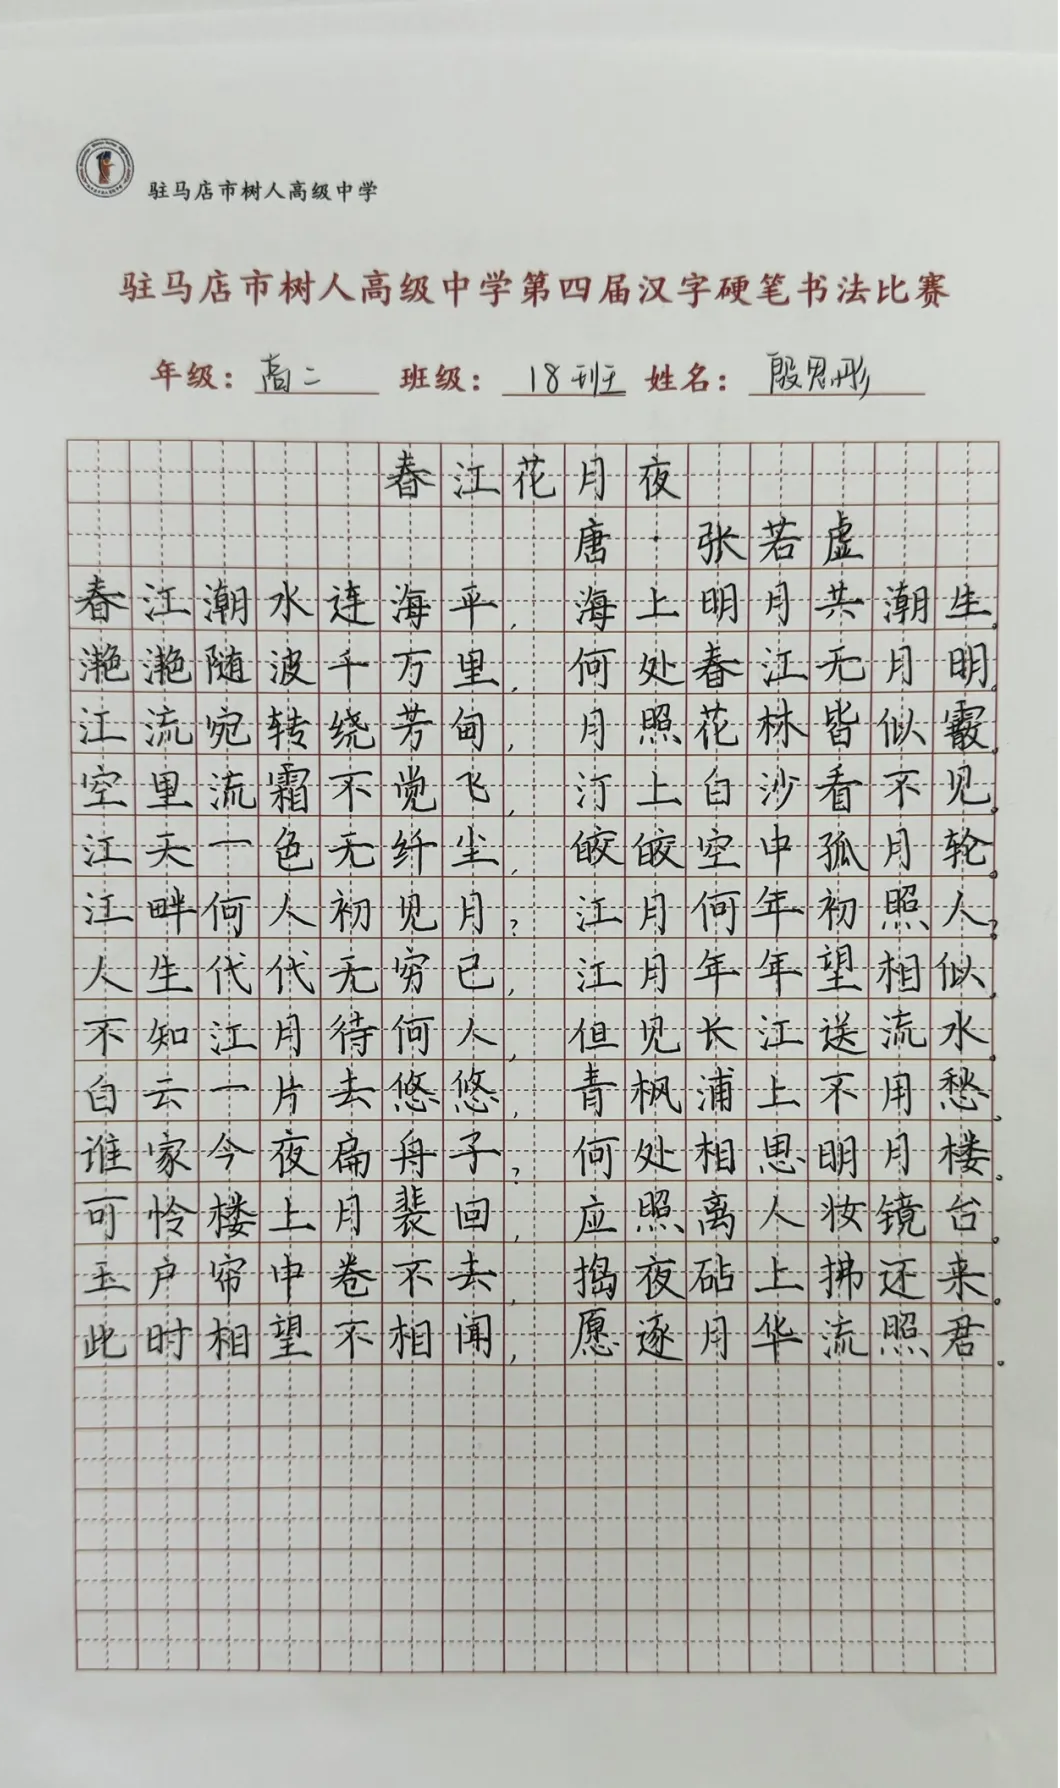 驻马店市树人高级中学
驻马店市树人高级中学第四届汉字硬笔书法比赛
年级：高二 班级：18班 姓名：殷思彤
春江花月夜
唐·张若虚
春江潮水连海平，海上明月共潮生。
滟滟随波千万里，何处春江无月明。
江流宛转绕芳甸，月照花林皆似霰。
空里流霜不觉飞，汀上白沙看不见。
江天一色无纤尘，皎皎空中孤月轮。
江畔何人初见月？江月何年初照人？
人生代代无穷已，江月年年望相似。
不知江月待何人，但见长江送流水。
白云一片去悠悠，青枫浦上不用愁。
谁家今夜扁舟子？何处相思明月楼。
可怜楼上月裴回，应照离人妆镜台。
玉户帘中卷不去，捣衣砧上拂还来。
此时相望不相闻，愿逐月华流照君。